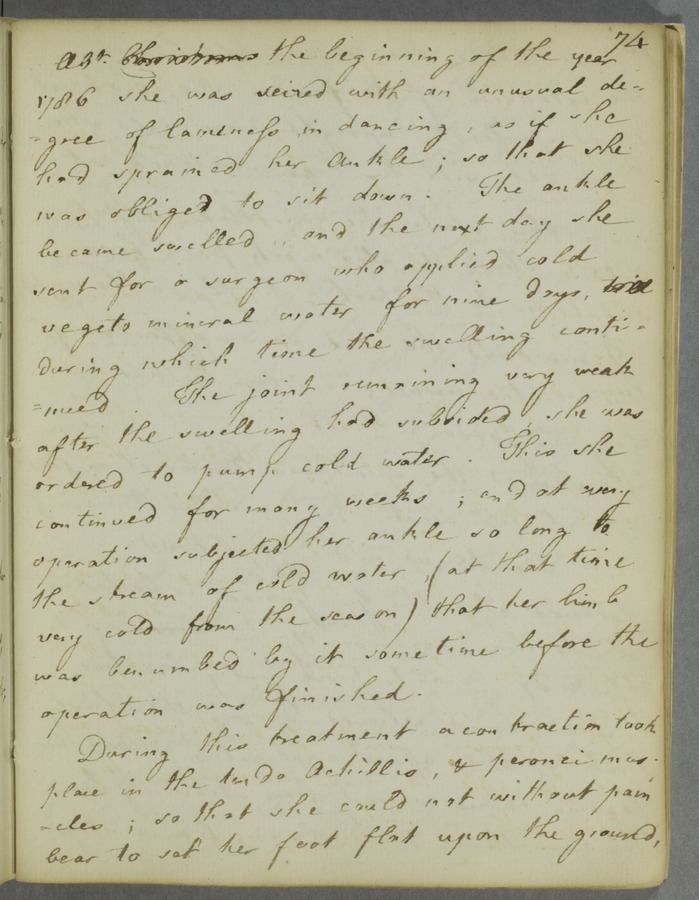 74
Abt. Christmas the beginning of the year
1786 she was seized with an unusual de-
=gree of lameness in dancing, as if she
had sprained her ankle; so that she
was obliged to sit down. The ankle
became swelled, and the next day she
sent for a surgeon who applied cold
vegeto mineral water for nine days, till
during which time the swelling conti=
=nued. The joint remaining very weak
after the swelling had subsided, she was
ordered to pump cold water. This she
continued for many weeks; and at every
operation subjected her ankle so long to
the stream of cold water, (at that time
very cold from the season) that her limb
was benumbed by it sometime before the
operation was finished.
During this treatment a contraction took
place in the tendo Achillis, & peronei mus-
-cles; so that she could not without pain
bear to set her foot flat upon the ground,